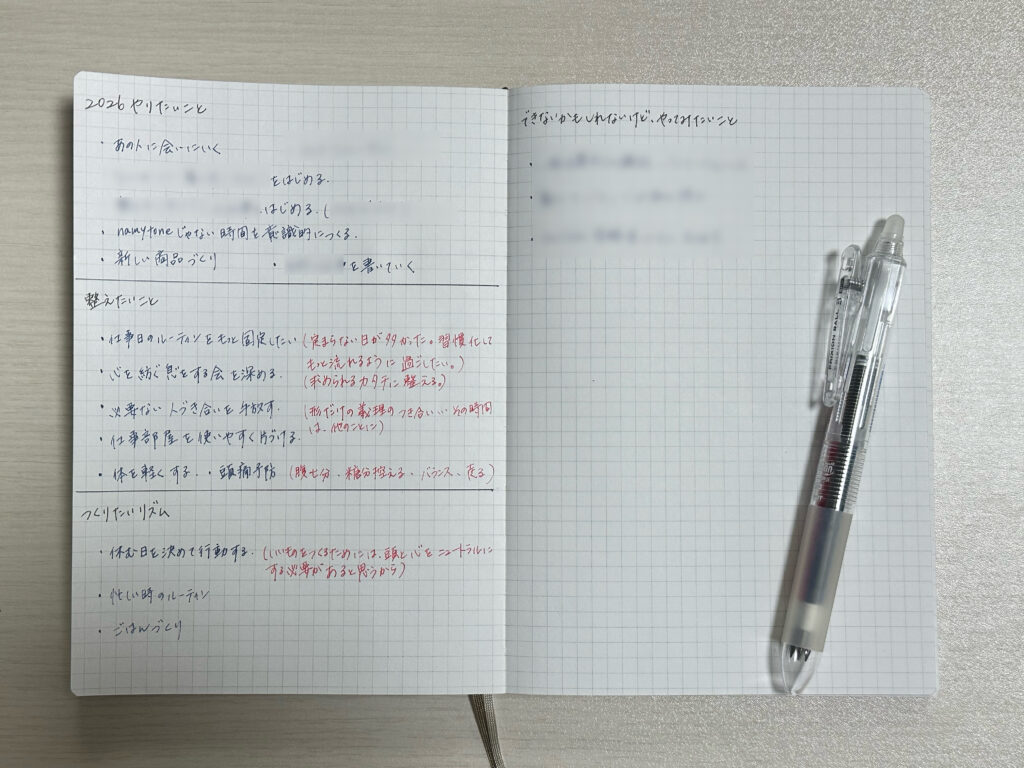 2026 やりたいこと
・あの人に会いにいく
をはじめる.
はじめる.(
・namytoneじゃない時間を意識的につくる.
・新しい商品づくり ・ を書いていく
整えたいこと
・仕事日のルーティンをもっと固定したい (定まらない日が多かった。習慣化して
もっと流れるように過ごしたい。)
・心を紡ぐ をする会を深める. (求められるカタチに整える。)
・必要ない人づき合いを手放す. (形だけの義理のつき合い… その時間
は、他のことに)
・仕事部屋を使いやすく片づける.
・体を軽くする. ・頭痛予防 (腹七分、糖分控える、バランス、走る)
つくりたいリズム
・休む日を決めて行動する. (いいものをつくるためには、頭と心をニュートラルに
する必要があると思うから)
・忙しい時のルーティン
・ごはんづくり
できないかもしれないけど、やってみたいこと
FRIXION BALL